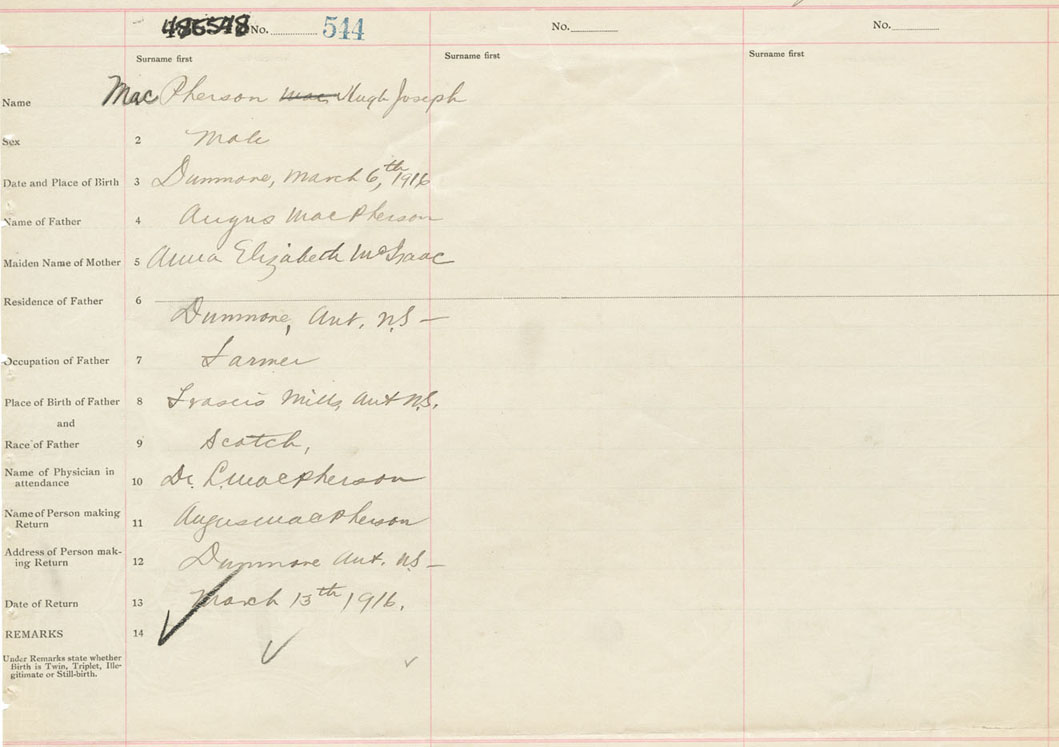 486548 No. 544 No. No.
Surname first Surname first Surname first
Name MacPherson Mac Hugh Joseph
Sex 2 Male
Date and Place of Birth 3 Dunmore, March 6th, 1916
Name of Father 4 Angus MacPherson
Maiden Name of Mother 5 Anna Elizabeth McIsaac
Residence of Father 6
Dunmore, Ant. N.S-
Occupation of Father 7 Farmer
Place of Birth of Father 8 Frasers Mills, Ant N.S.
and
Race of Father 9 Scotch,
Name of Physician in
attendance 10 Dr. C. MacPherson
Name of Person making
Return 11 Angus MacPherson
Address of Person mak-
ing Return 12 Dunmore Ant. N.S-
Date of Return 13 March 13th 1916.
REMARKS 14
Under Remarks state whether
Birth is Twin, Triplet, Ille-
gitimate or Still-birth.